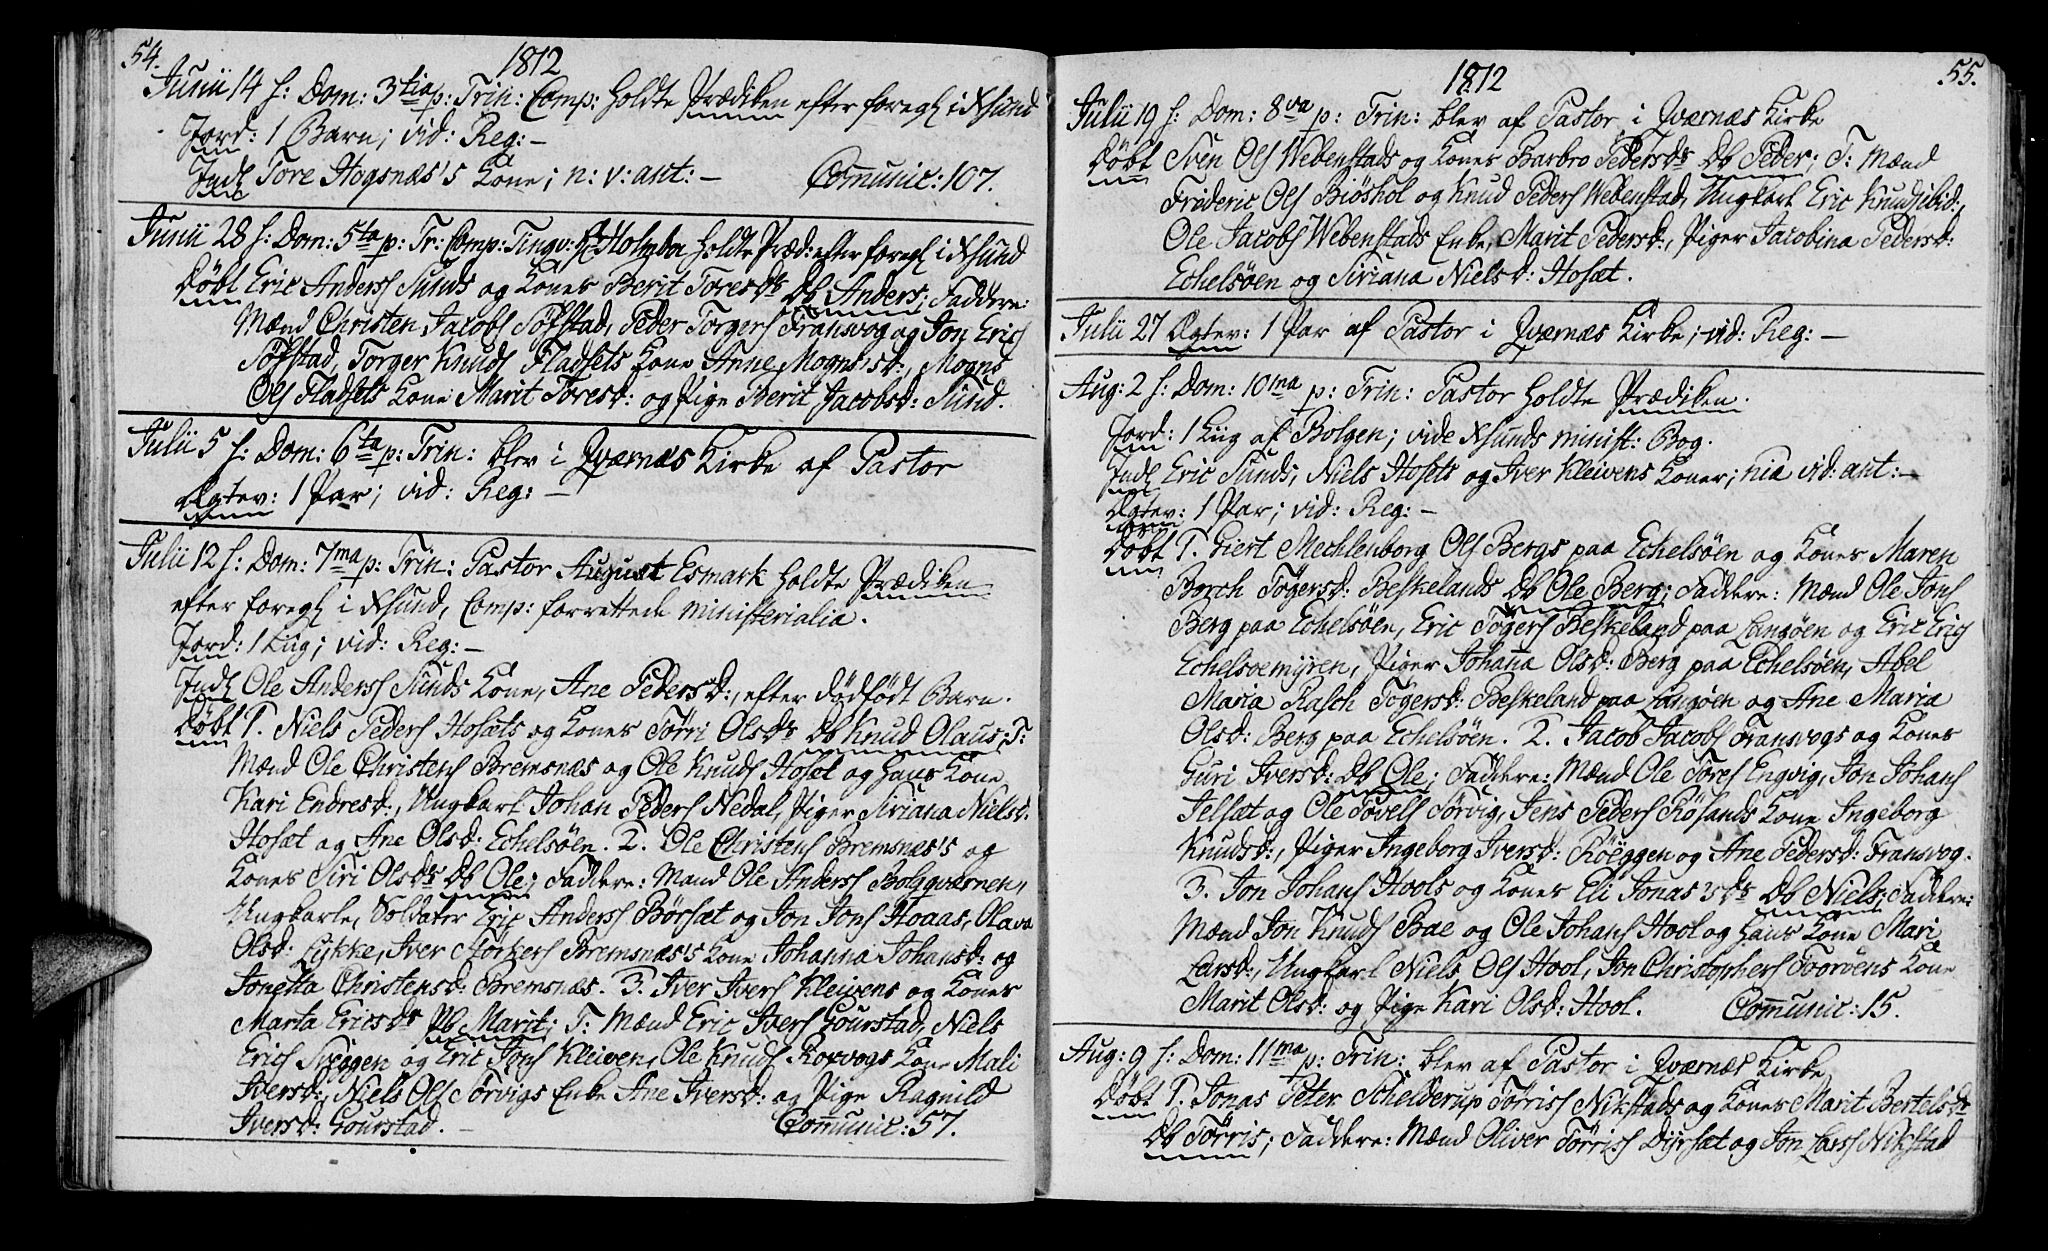 54.
1812
Junii 14 h: Dom: 3tia p: Trin: Comp: holdte Prædiken efter foregh i Xsund
Jord: 1 Barn; vid: Reg: –
Indl Tore Hogsnæs's Kone; n: v: ant: – Comunic: 107.
Junii 28 h: Dom: 5ta p: Tr: Comp: Tingv: Hr Holmbo holdte Præd: efter foregh i Xsund
Døbt Eric Anders Sunds og Kones Berit Toresdr Db Anders; Faddere:
Mænd Christen Jacobs Søfstad, Peder Torgers Fransvog og Jon Erics
Søfstad, Torger Knuds Fladsets Kone Anne Mognsd:, Mogns
Ols Fladsets Kone Marit Toresd: og Pige Berit Jacobsd: Sund.
Julii 5 h: Dom: 6ta p: Trin: blev i Qværnæs Kirke af Pastor
Ægtev: 1 Par; vid: Reg: –
Julii 12 h: Dom: 7ma p: Trin: Pastor August Esmark holdte Prædiken
efter foregh i Xsund, Comp: forrettede ministerialia.
Jord: 1 Liig; vid: Reg: –
Indl Ole Anders Sunds Kone, Ane Pedersd:, efter dødfødt Barn.
Døbt 1. Niels Peders Hosets og Kones Tørri Olsdr Db Knud Olaus; F:
Mænd Ole Christens Bremsnæs og Ole Knuds Hoset og hans Kone
Kari Endresd:, Ungkarl Johan Peders Nedal, Piger Siriana Nielsd:
Hosæt og Ane Olsd: Echelsøen. 2. Ole Christens Bremsnæs's og
Kones Siri Olsdr Db Ole; Faddere: Mænd Ole Anders Bolgqværnen,
Ungkarle, Soldater Eric Anders Børsæt og Jon Jons Hoaas, Olava
Olsd: Lykke, Iver Størkers Bremsnæs's Kone Johanna Johansd: og
Jonetta Christensd: Bremsnæs. 3. Iver Ivers Kleivens og Kones
Marta Ericsdr Pb Marit; F: Mænd Eric Ivers Gourstad, Niels
Erics Sveggen og Eric Jons Kleiven, Ole Knuds Rorvogs Kone Mali
Iversd:, Niels Ols Sørvigs Enke Ane Iversd: og Pige Ragnild
Iversd: Gourstad. – Comunic: 57.
1812
55.
Julii 19 h: Dom: 8va p: Trin: blev af Pastor i Qværnæs Kirke
Døbt Sven Ols Webenstads og Kones Barbro Pedersdr Db Peder; F: Mænd
Frideric Ols Biøshol og Knud Peders Webenstad, Ungkarl Eric Knuds ibid:,
Ole Jacobs Webenstads Enke Marit Pedersd:, Piger Jacobina Pedersd:
Echelsøen og Siriana Nielsd: Hosæt.
Julii 27 Ægtev: 1 Par af Pastor i Qværnæs Kirke; vid: Reg: –
Aug: 2 h: Dom: 10ma p: Trin: Pastor holdte Prædiken.
Jord: 1 Liig af Bolgen; vide Xsunds minist: Bog.
Indl Eric Sunds, Niels Hosets og Iver Kleivens Koner; nia vid: ant: –
Ægtev: 1 Par; vid: Reg: –
Døbt 1. Giert Mechlenborg Ols Bergs paa Echelsøen og Kones Maren
Borch Tøgersd: Beskelands Db Ole Berg; Faddere: Mænd Ole Jons
Berg paa Echelsøen, Eric Tøgers Beskeland paa Langøen og Eric Erics
Echelsoemyren, Piger Johanna Olsd: Berg paa Echelsøen, Abel
Maria Rasch Tøgersd: Beskeland paa Langøen og Ane Maria
Olsd: Berg paa Echelsøen. 2. Jacob Jacobs Fransvogs og Kones
Guri Iversd: Db Ole; Faddere: Mænd Ole Tores Engvig, Jon Johans
Selsæt og Ole Tovels Sørvig, Jens Peders Røsands Kone Ingeborg
Knudsd:, Piger Ingeborg Iversd: Røeggen og Ane Pedersd: Fransvog.
3. Jon Johans Hools og Kones Eli Jonas's dr Db Niels; Faddere:
Mænd Jon Knuds Bae og Ole Johans Hool og hans Kone Mari
Larsd:, Ungkarl Niels Ols Hool, Jon Christophers Toorøens Kone
Marit Olsd: og Pige Kari Olsd: Hool. Comunic: 15.
Aug: 9 h: Dom: 11ma p: Trin: blev af Pastor i Qværnæs Kirke
Døbt 1. Jonas Peter Schelderup Tørriss Nikstads og Kones Marit Bertelsdr
Db Tørris; Faddere: Mænd Oliver Tørriss Dyrsæt og Jon Larss Nikstad